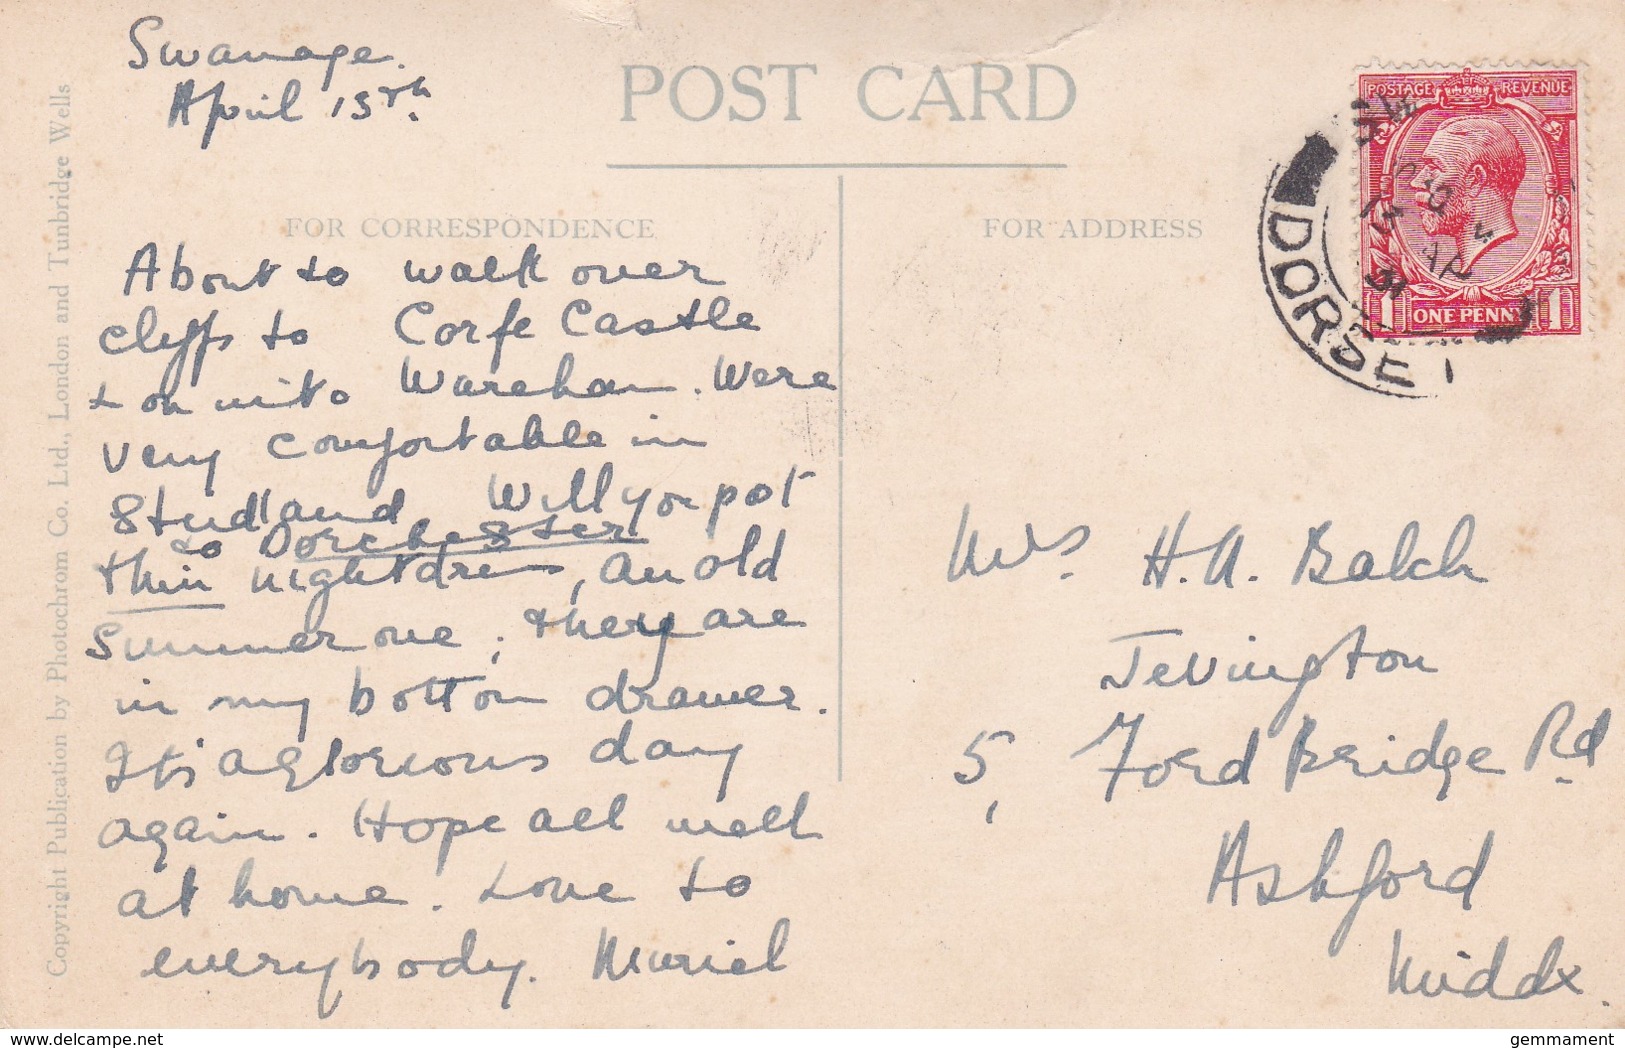 Swanage.
April 13th.
POST CARD
FOR CORRESPONDENCE
FOR ADDRESS
About to walk over
cliffs to Corfe Castle
+ on into Wareham. Were
very comfortable in
Studland. Will you post
to Dorchester
thin nightdress, an old
Summer one, they are
in my bottom drawer.
It's a glorious day
again. Hope all well
at home. Love to
everybody. Muriel
Mrs. H. A. Balch
Jevington
5, Ford Bridge Rd
Ashford
Middx.
POSTAGE REVENUE
1 ONE PENNY 1
SW
DORSET
13 AP
31
Copyright Publication by Photochrom Co. Ltd., London and Tunbridge Wells
delcampe.net
gemmament